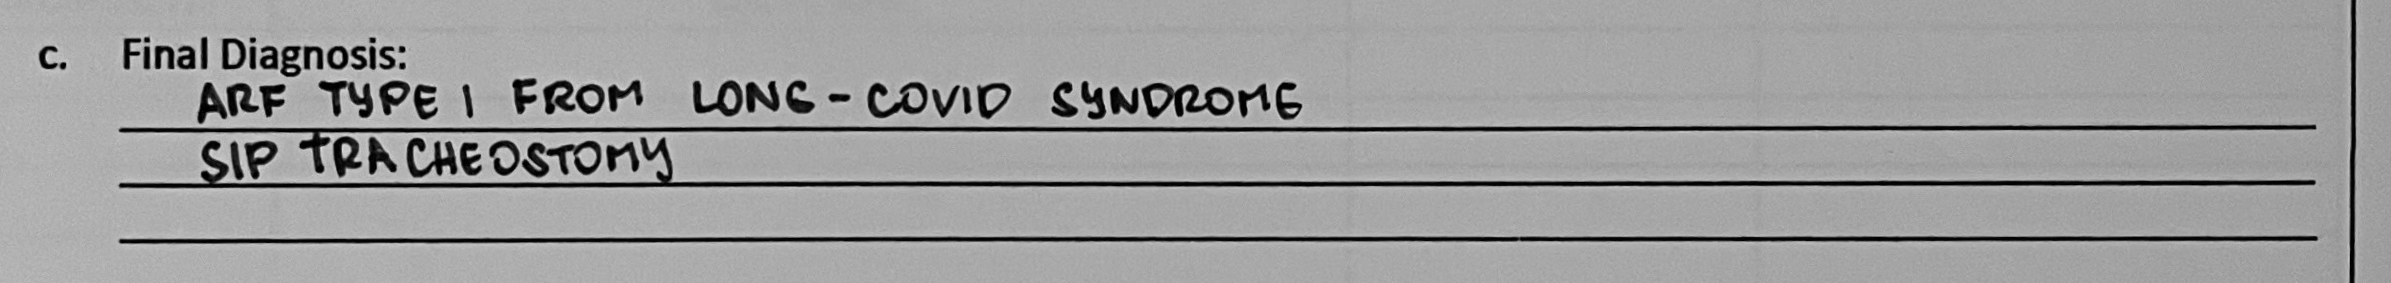 c. Final Diagnosis:
ARF TYPE 1 FROM LONG-COVID SYNDROME
S/P TRACHEOSTOMY